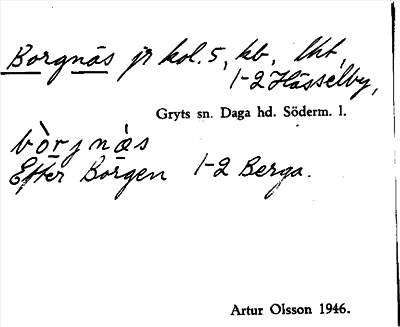 Borgnäs jr kol. 5, kb, lht,
1-2 Hässelby,
Gryts sn. Daga hd. Söderm. l.
bòrjnä̀s
Efter Borgen 1-2 Berga.
Artur Olsson 1946.